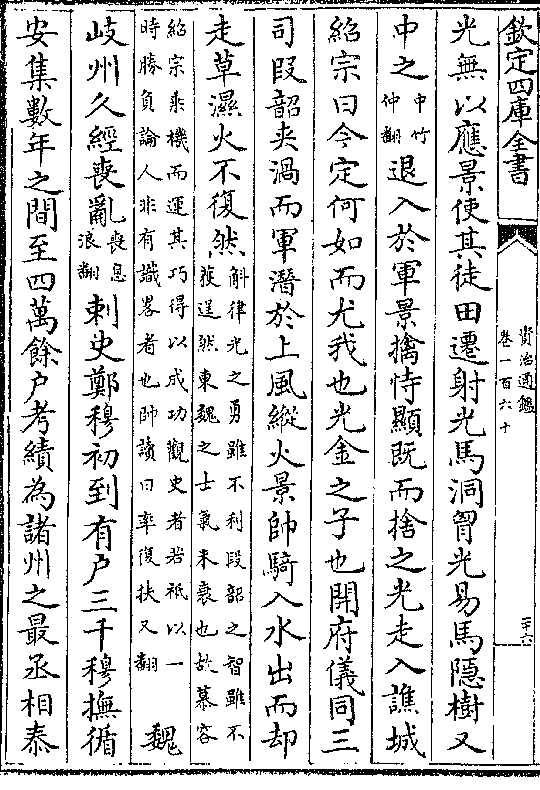 欽定四庫全書
資治通鑑
卷一百六十
光無以應景使其徒田遷射光馬洞胷光易馬隱樹又
中之中竹仲翻退入於軍景擒恃顯既而捨之光走入譙城
紹宗曰今定何如而尤我也光金之子也開府儀同三
司段韶夾渦而軍潛於上風縱火景帥騎入水出而却
走草濕火不復然斛律光之勇雖不利段韶之智雖不獲逞然東魏之士氣未衰也故慕容
紹宗乘機而運其巧得以成功觀史者若祇以一時勝負論人非有識畧者也帥讀曰率復扶又翻魏
岐州久經喪亂喪息浪翻刺史鄭穆初到有户三千穆撫循
安集數年之間至四萬餘户考績為諸州之最丞相泰